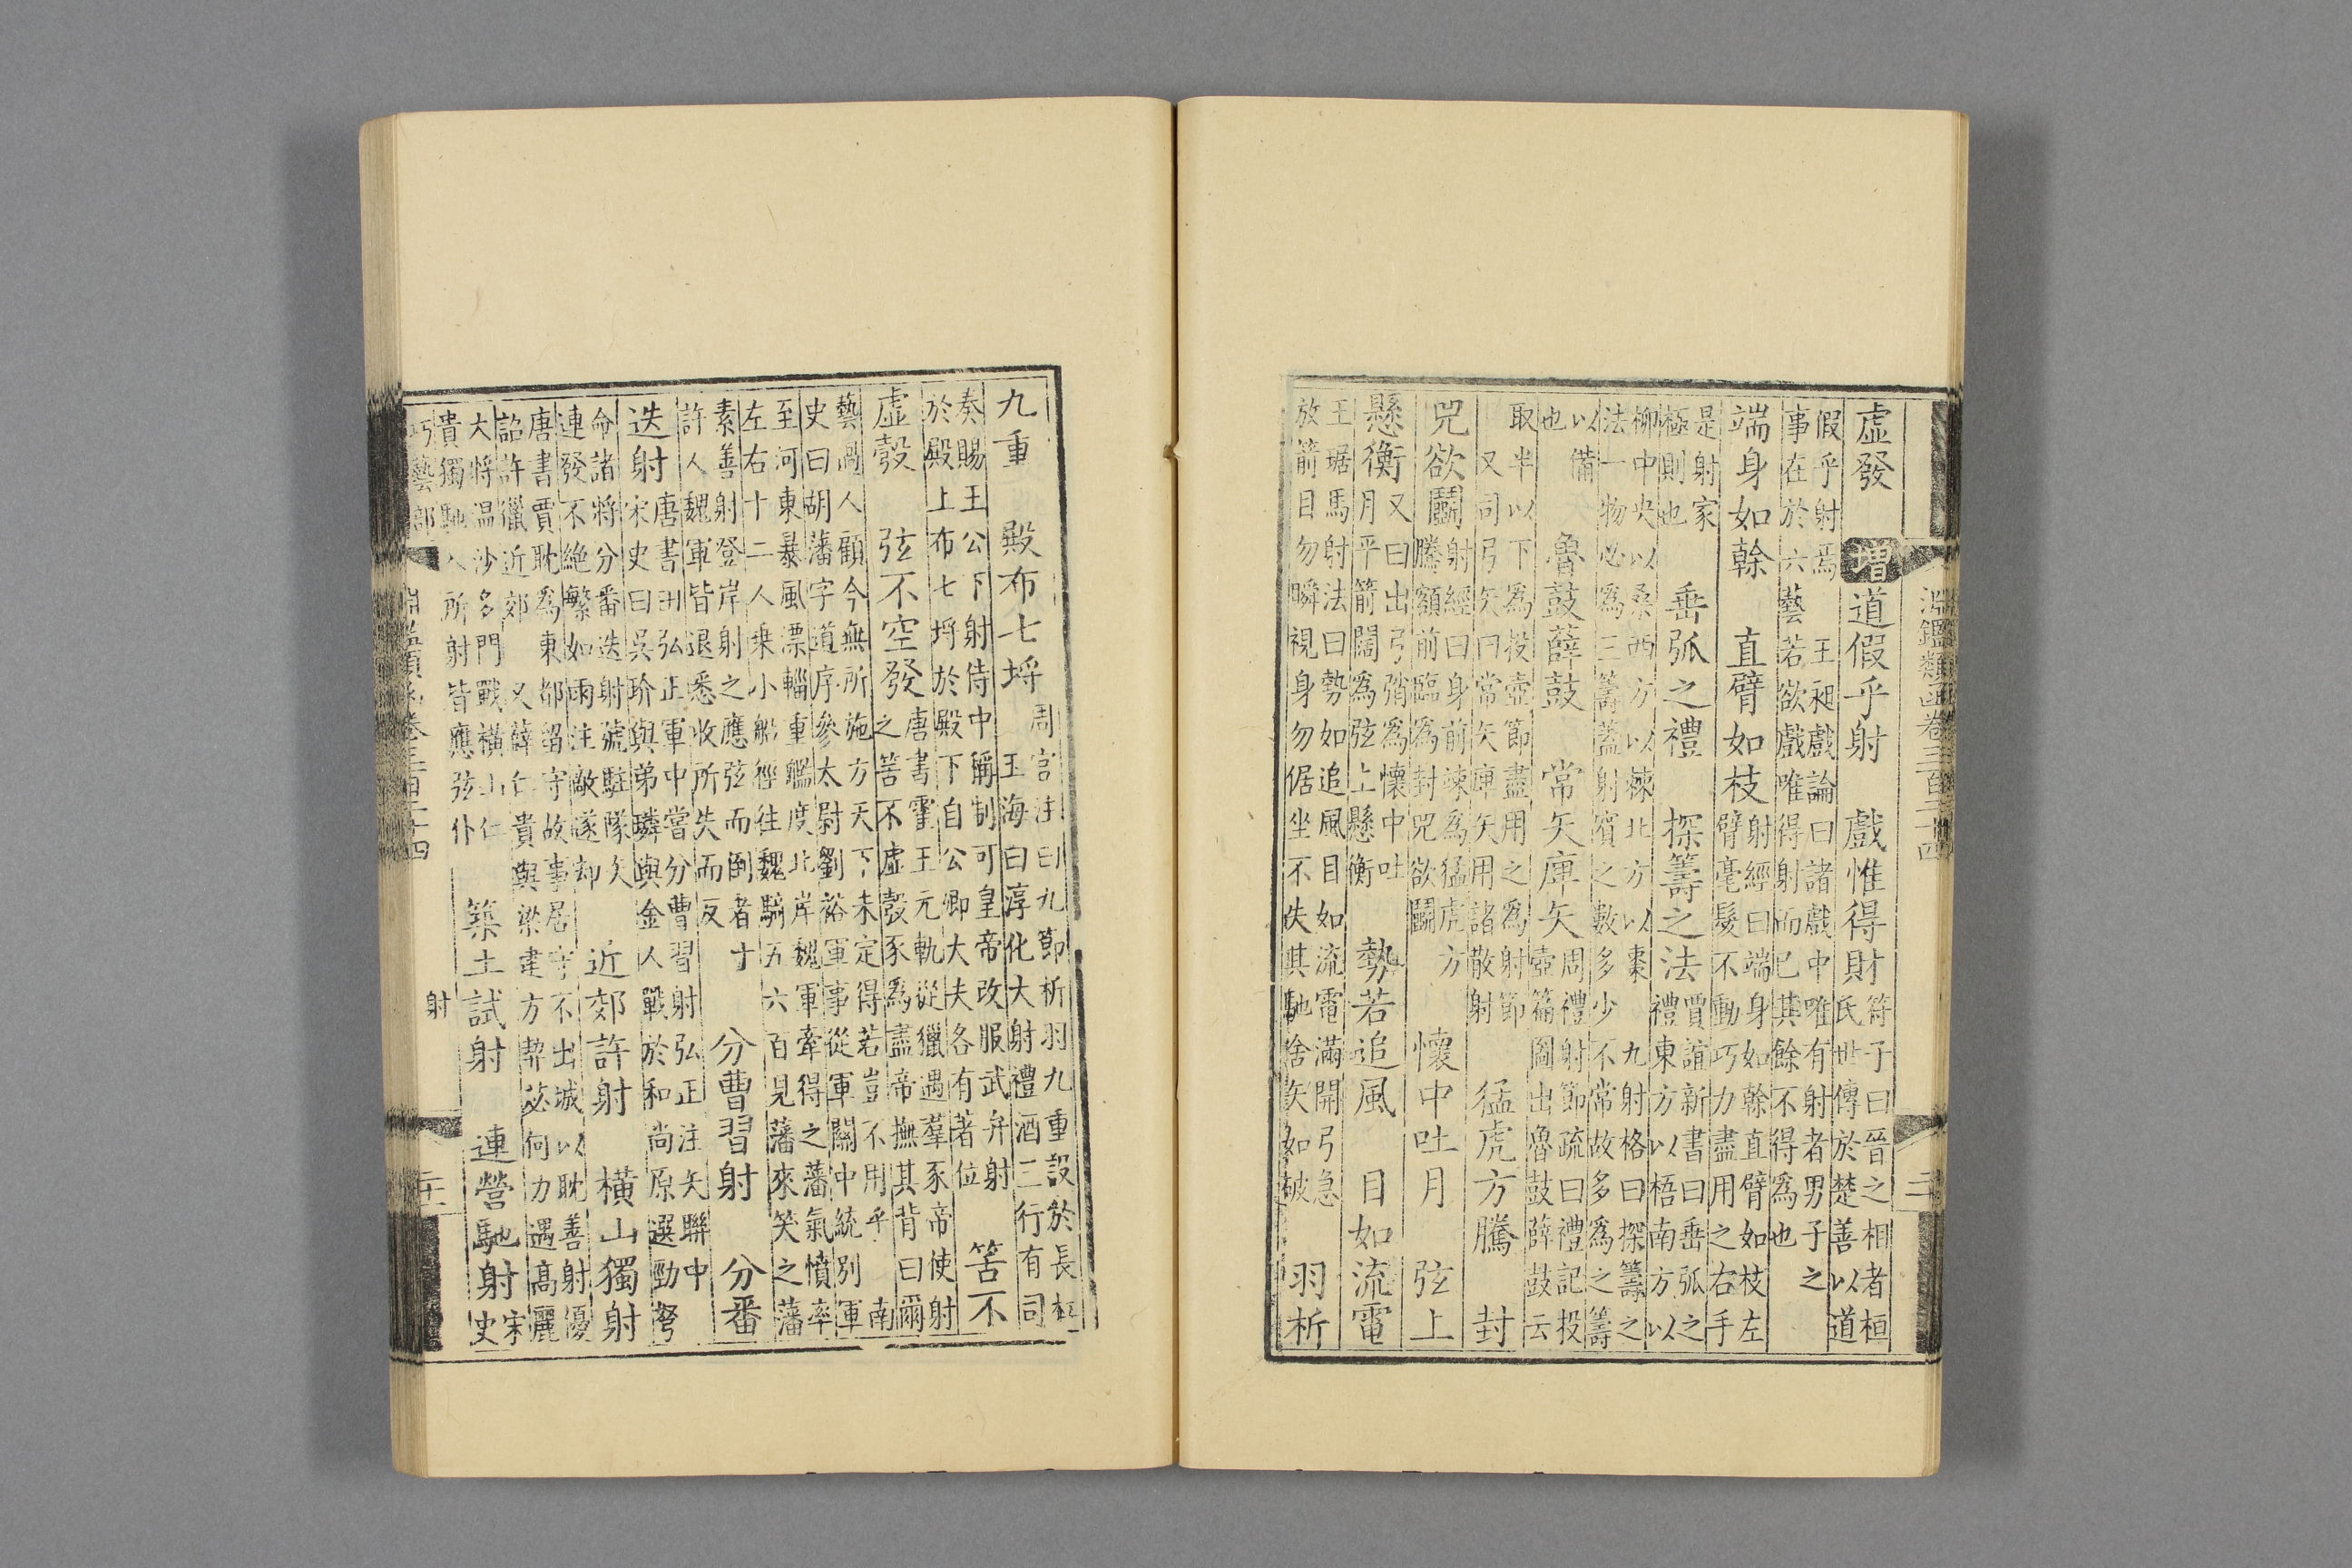 淵鑑類函卷三百二十四
虛發 增 道假乎射 戲惟得財 符子曰晉之相者桓
氏世傳於楚善以道
假乎射焉 王昶戲論曰諸戲中唯有射者男子之
事在於六藝若欲戲唯得射而已其餘不得為也
端身如榦 直臂如枝 射經曰端身如榦直臂如枝左
臂毫髮不動巧力盡用之右手
是射家
極則也 垂弧之禮 探籌之法 賈誼新書曰垂弧之
禮東方以梧南方以
柳中央以桑西方以棘北方以棗 九射格曰探籌之
法一物必為三籌蓋射賓之數多少不常故多為之籌
以備
也 魯鼓薛鼓 常矢庳矢 周禮射節疏曰禮記投
壺篇圖出魯鼓薛鼓云
取半以下為投壺節盡用之為射節
又司弓矢曰常矢庳矢用諸散射 猛虎方騰 封
兕欲鬭 射經曰身前竦為猛虎方
騰額前臨為封兕欲鬭 懷中吐月 弦上
懸衡 又曰出弓弰為懷中吐
月平箭闊為弦上懸衡 勢若追風 目如流電
王琚馬射法曰勢如追風目如流電滿開弓急
放箭目勿瞬視身勿倨坐不失其馳舍矢如破 羽析
九重 殿布七埓 周官注曰九節析羽九重設於長杠
玉海曰淳化大射禮酒三行有司
奏賜王公下射侍中稱制可皇帝改服武弁射
於殿上布七埓於殿下自公卿大夫各有著位 筈不
虛彀 弦不空發 唐書霍王元軌從獵遇羣豕帝使射
之筈不虛彀豕為盡帝撫其背曰爾
藝過人顧今無所施方天下未定得若豈不用乎 南
史曰胡藩字道序參太尉劉裕軍事從軍關中統別軍
至河東暴風漂輜重艦度北岸魏軍牽得之藩氣憤率
左右十二人乗小船徑往魏騎五六百見藩來笑之藩
素善射登岸射之應弦而倒者十
許人魏軍皆退悉收所失而反 分曹習射 分番
迭射 唐書田弘正軍中嘗分曹習射弘正注矢聯中
宋史曰吳玠與弟璘與金人戰於和尚原選勁弩
命諸將分番迭射號駐隊矢
連發不絶繁如雨注敵遂却 近郊許射 橫山獨射
唐書賈耽為東都留守故事居守不出城以耽善射優
詔許獵近郊 又薛仁貴與梁建方契苾何力遇高麗
大將温沙多門戰橫山仁
貴獨馳入所射皆應弦仆 築土試射 連營馳射 宋
史
巧藝部 淵鑑類函卷三百二十四 射